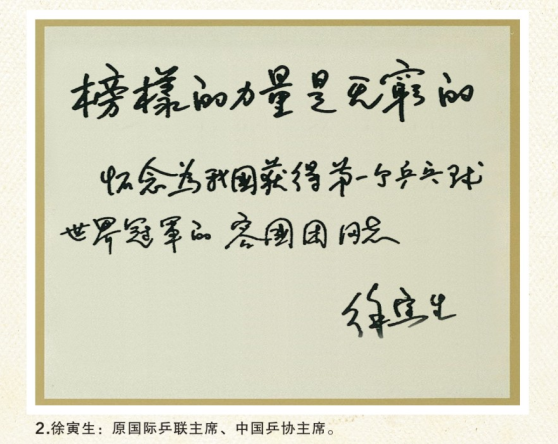 榜樣的力量是无窮的
怀念为我國获得第一个乒乓球
世界冠軍的容國团同志
徐寅生
2.徐寅生：原国际乒联主席、中国乒协主席。